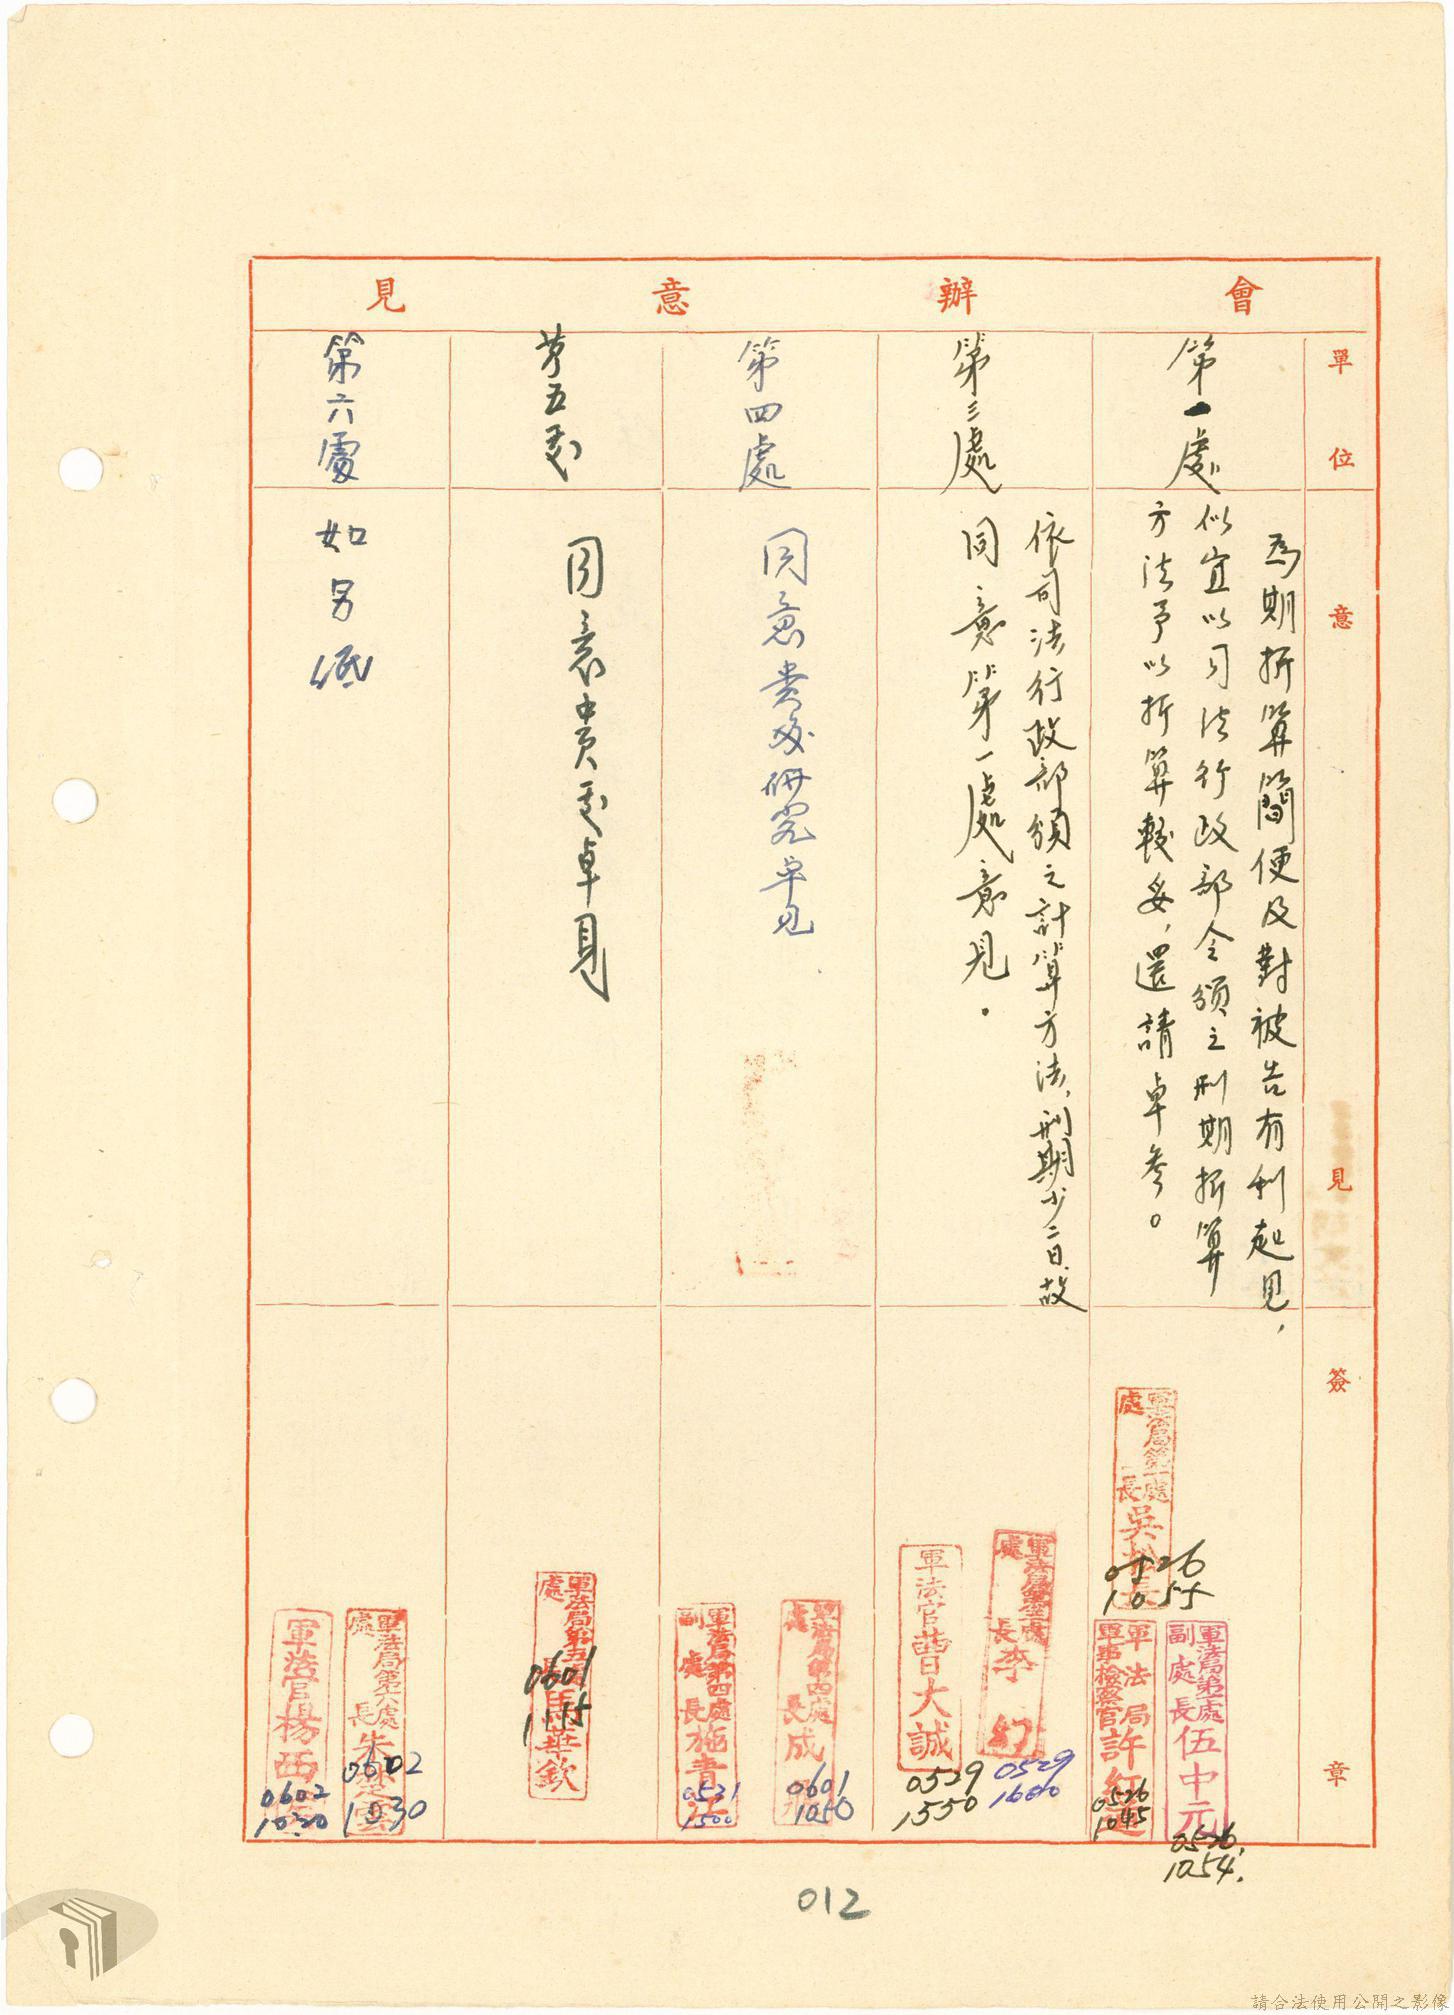 會辦意見
單位
意見
簽章
第一處
為期折算簡便及對被告有利起見，
似宜以司法行政部令頒之刑期折算
方法予以折算較妥，還請卓參。
軍法局第一處
處長吳
0526
1055
軍法局第一處
副處長伍中元
0526.
1054.
軍法局
軍事檢察官許
0526
1045
第三處
依司法行政部頒之計算方法，刑期少二日，故
同意第一處意見。
軍法局第三處
處長李
0529
1600
軍法官曹大誠
0529
1550
第四處
同意貴處研究卓見
軍法局第四處
處長成
0601
1050
軍法局第四處
副處長施青
0531
1500
第五處
同意貴處卓見
軍法局第五處
處長馬華欽
0601
1115
第六處
如另紙
軍法局第六處
處長朱
0602
1030
軍法官楊西
0602
1020
012
請合法使用公開之影像